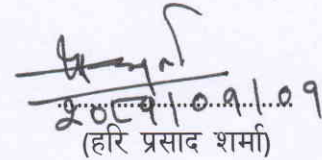 २०८१।०१।०१
(हरि प्रसाद शर्मा)